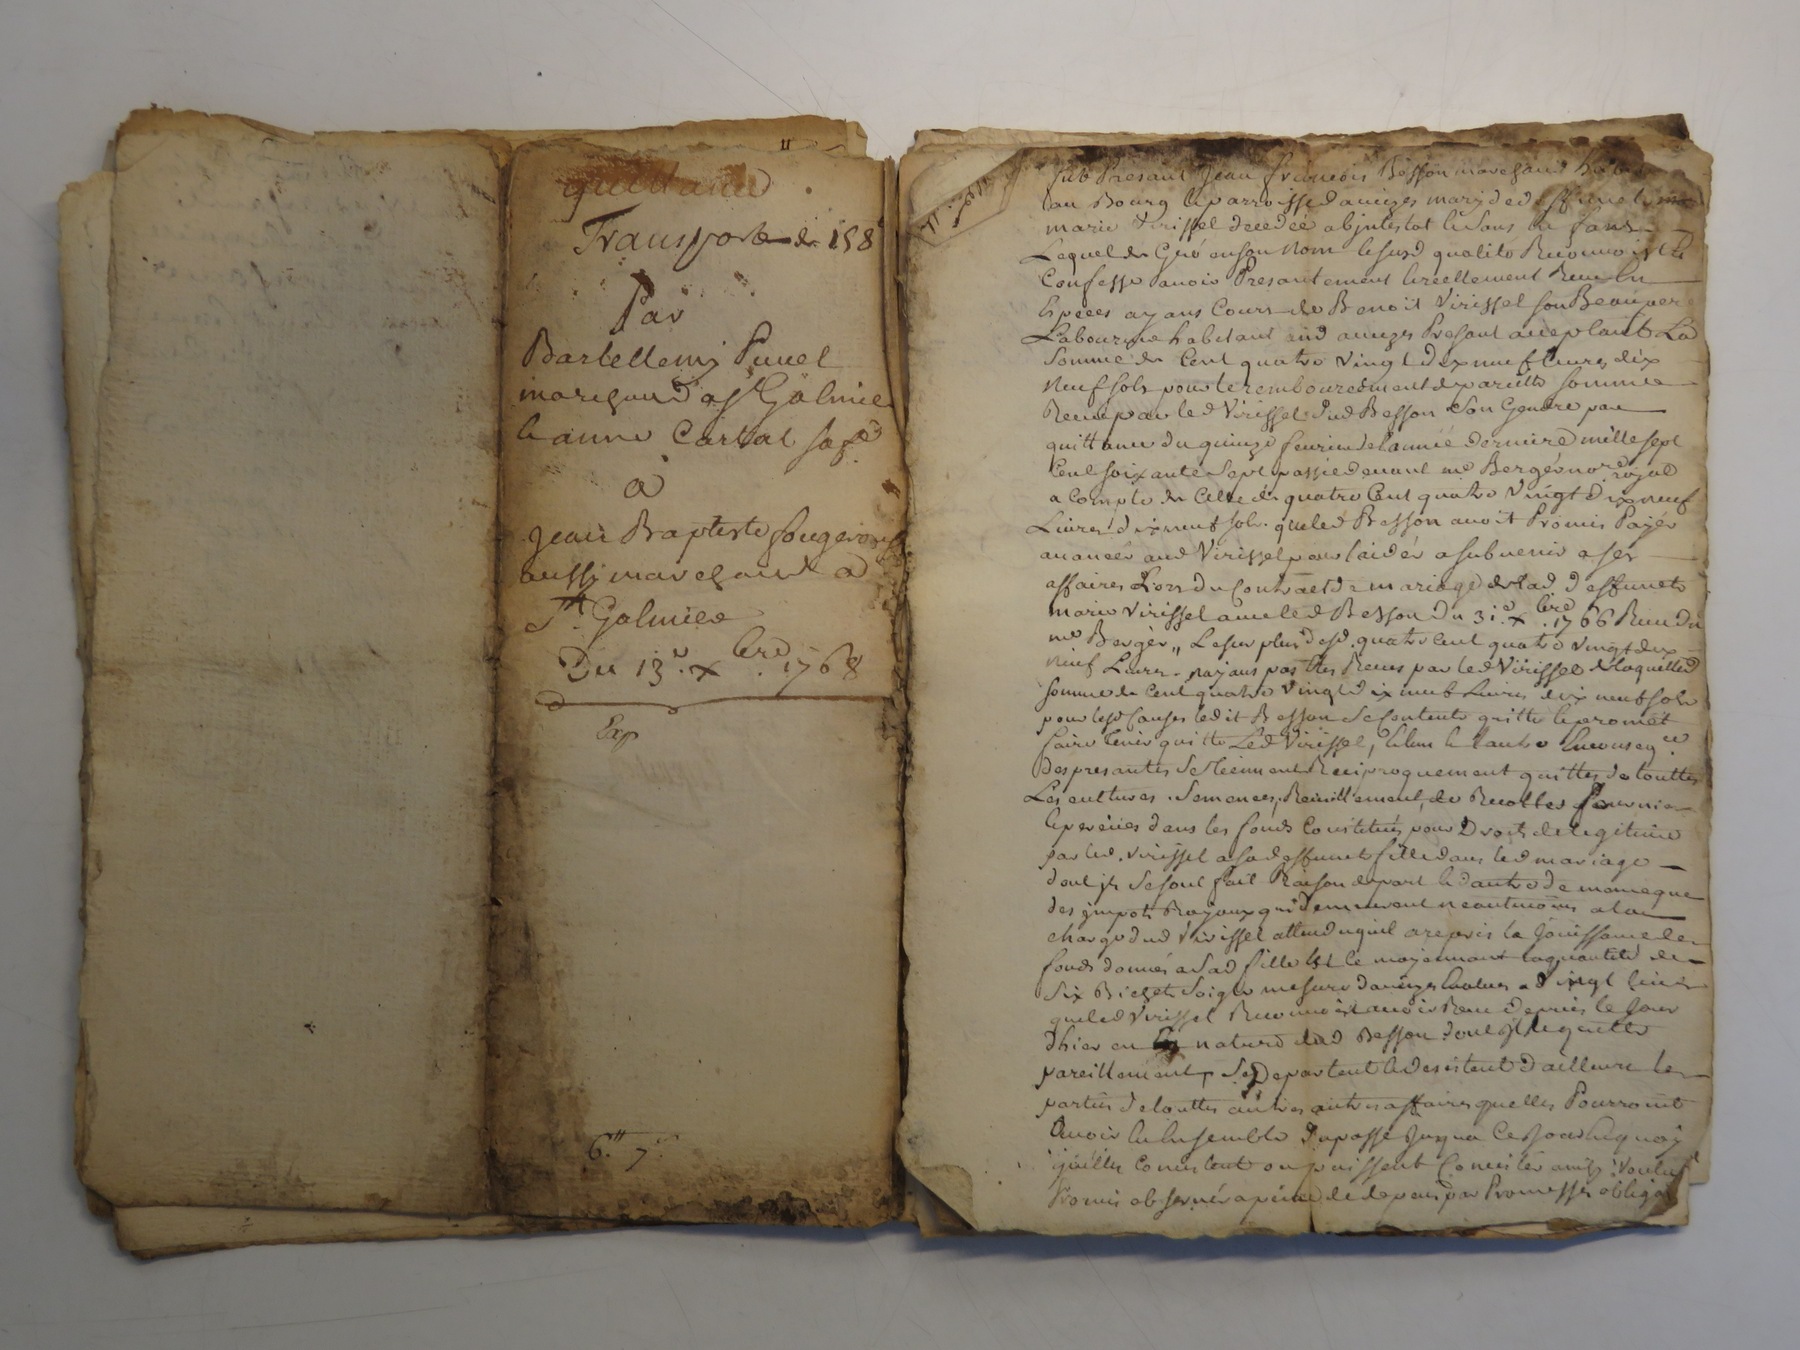 quittance
Transport de 158
Par
Bartellemi Punel
marchand a St Galmier
et anne Cartal sa fe
a
Jean Baptiste fougerous
aussi marchand a
St Galmier
Du 13e xbre 1768
Exp
6tt 7s
fut Presant Jean francois Besson marchand
au Bourg et parroisse d'aveizes mary de deffuncte
marie Virissel decedée abjntestat et sans
Lequel de Gré en son Nom et susd qualité Reconnoist et
Confesse avoir Presantement et reellement Receu en
Especes ayans Cours de Benoit Virissel son Beaupere
Laboureur habitant aud aveizes Presant acceptant La
somme de Cent quatre vingt dix neuf livres dix
Neuf sols pour le remboursement de pareille somme
Receu par led Virissel dud Besson son Gendre par
quittance du quinze feurier de l'année derniere mille sept
Cent soixante sept passée devant me Berger nore royal
a Compte de Celle de quatre Cent quatre Vingt dix neuf
Livres dix neuf sols que led Besson avoit Promis Payer
avancer aud Virissel pour laider a subvenir a ses
affaires Lors du Contract de mariage de lad deffuncte
marie Virissel avec led Besson du 31e xbre 1766 Receu dud
me Berger,, Le surplus desd quatre cent quatre vingt dix
neuf Livres nayans pas etes Receus par led Virissel de laquelle
somme de Cent quatre Vingt dix neuf Livres dix neuf sols
pour lesd Causes ledit Besson se Contente quitte et promet
faire tenir quitte Led Virissel, et lun et lautre En conseqce
des presantes se tiennent Reciproquement quittes de touttes
Les cultures, Semences, Reuillement, de Recoltes
et perçües dans les fonds Constitués pour Droits de legitime
par led. Virissel a sad deffuncte fille dans led mariage
dont jls se sont fait Raison de part et dautre de meme que
des jmpots Royaux qui demeurent neantmoins a la
charge dud Virissel attendu quil a repris la Jouissance des
fonds donnés a sad fille et le moyennant la quantité de
Six Bichets Soigle mesure daveizes Evalués a Vingt livres
que led Virissel Reconnoist avoir Receu depuis le Jour
dhier en nature dud Besson dont jl le quitte
pareillement, Se Departent et desistent dailleurs les
parties de touttes autres affaires quelles Pourroint
Avoir Eu Ensemble du passé Jusqua Ce Jourdhuy
quelles Consistent ou puissent Consister ainsy Voulu
Promis observer a peine de depens par Promesses obligaon